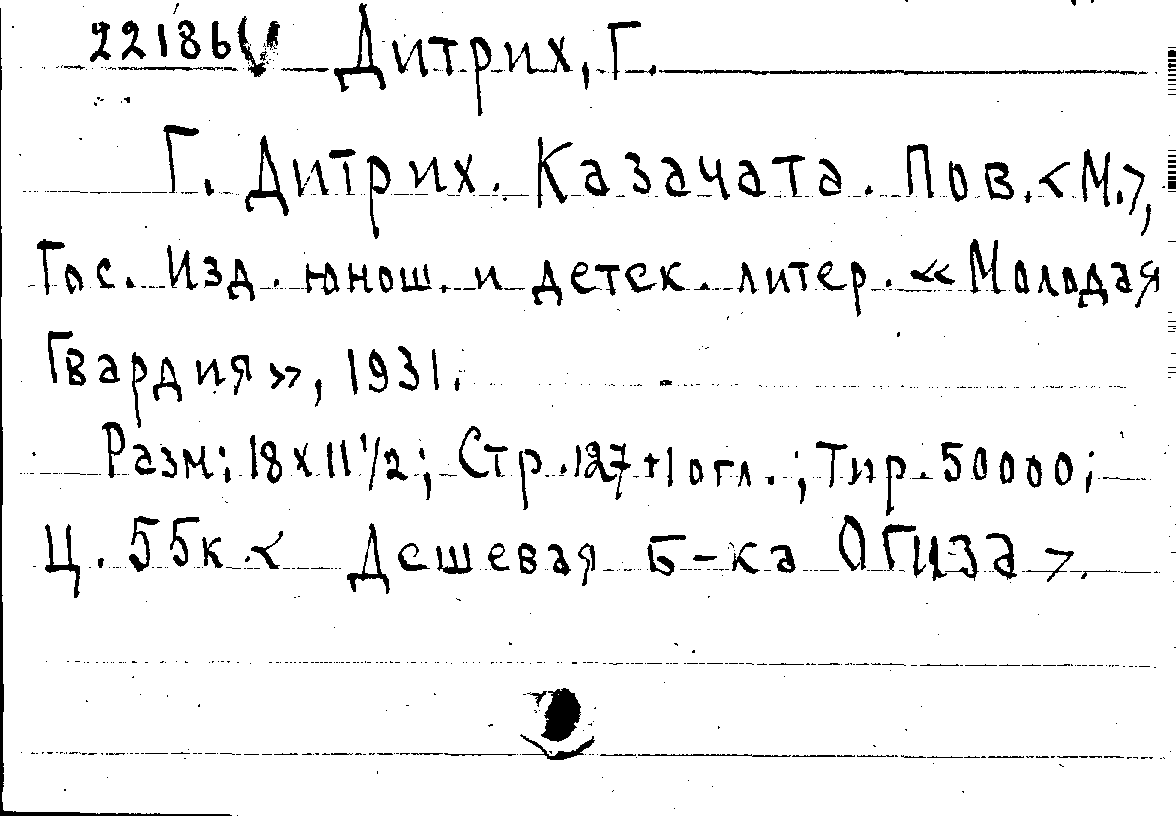 22186V Дитрих, Г.
Г. Дитрих. Казачата. Пов. <М.>,
Гос. Изд. юнош. и детск. литер. «Молодая
Гвардия», 1931.
Разм: 18 х 11 1/2; Стр. 127 + 1 огл.; Тир. 50000;
Ц. 55к. < Дешевая Б-ка ОГИЗа >.